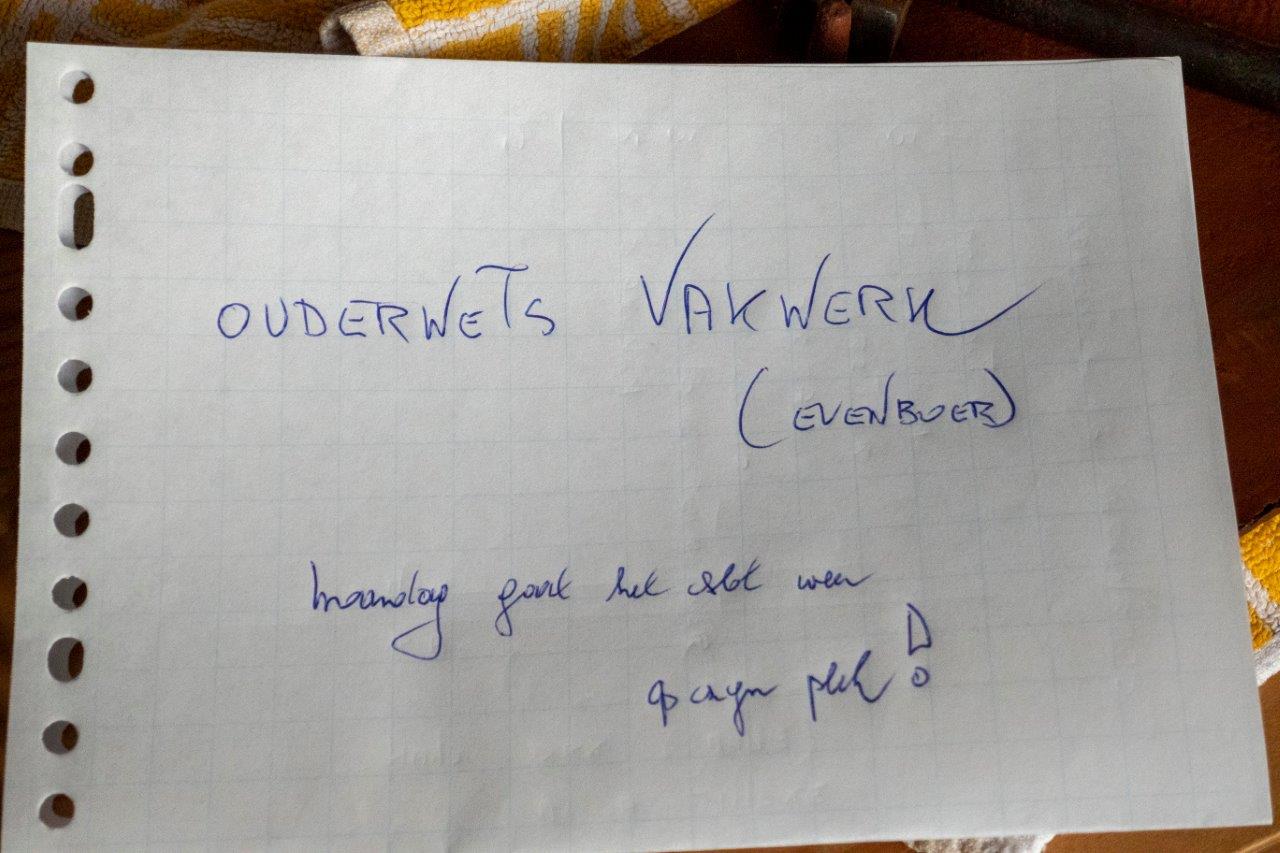 OUDERWETS VAKWERK
(EVENBOER)
maandag gaat het slot weer
op zijn plek!